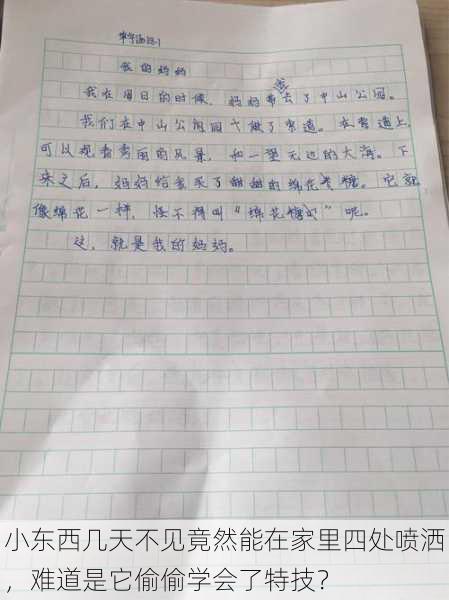 我的妈妈
我在假日的时候，妈妈带我去了中山公园。
我们在中山公园做了索道。在索道上，
可以观看秀丽的风景，和一望无边的大海。下
来之后，妈妈给我买了甜甜的棉花糖。它就
像绵花一样，怪不得叫“绵花糖”呢。
这，就是我的妈妈。
小东西几天不见竟然能在家里四处喷洒
，难道是它偷偷学会了特技？